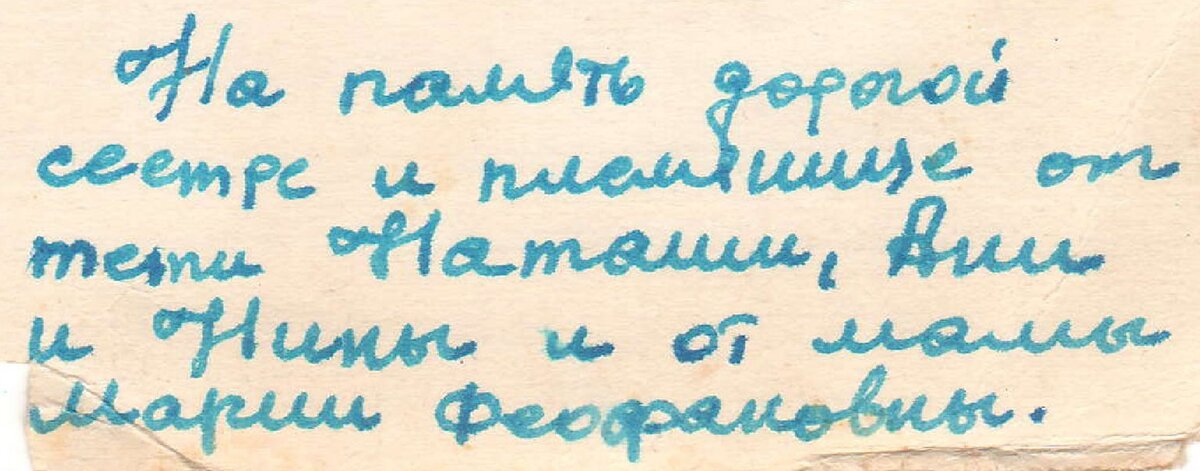 На память дорогой
сестре и племяннице от
тети Наташи, Ани
и Нины и от мамы
Марии Феофановны.